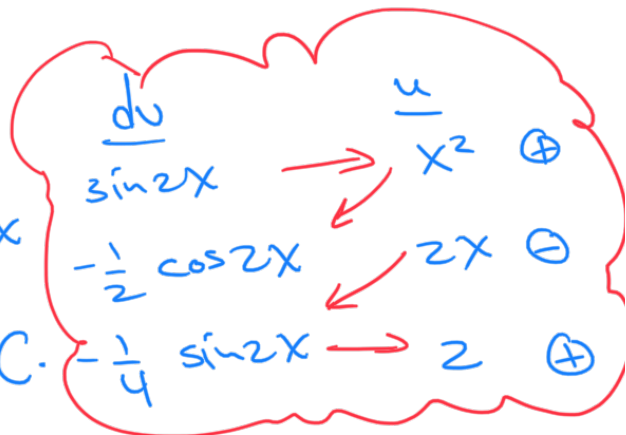 dv u
sin2x → x² ⊕
x -1/2 cos2x 2x ⊖
C. -1/4 sin2x → 2 ⊕